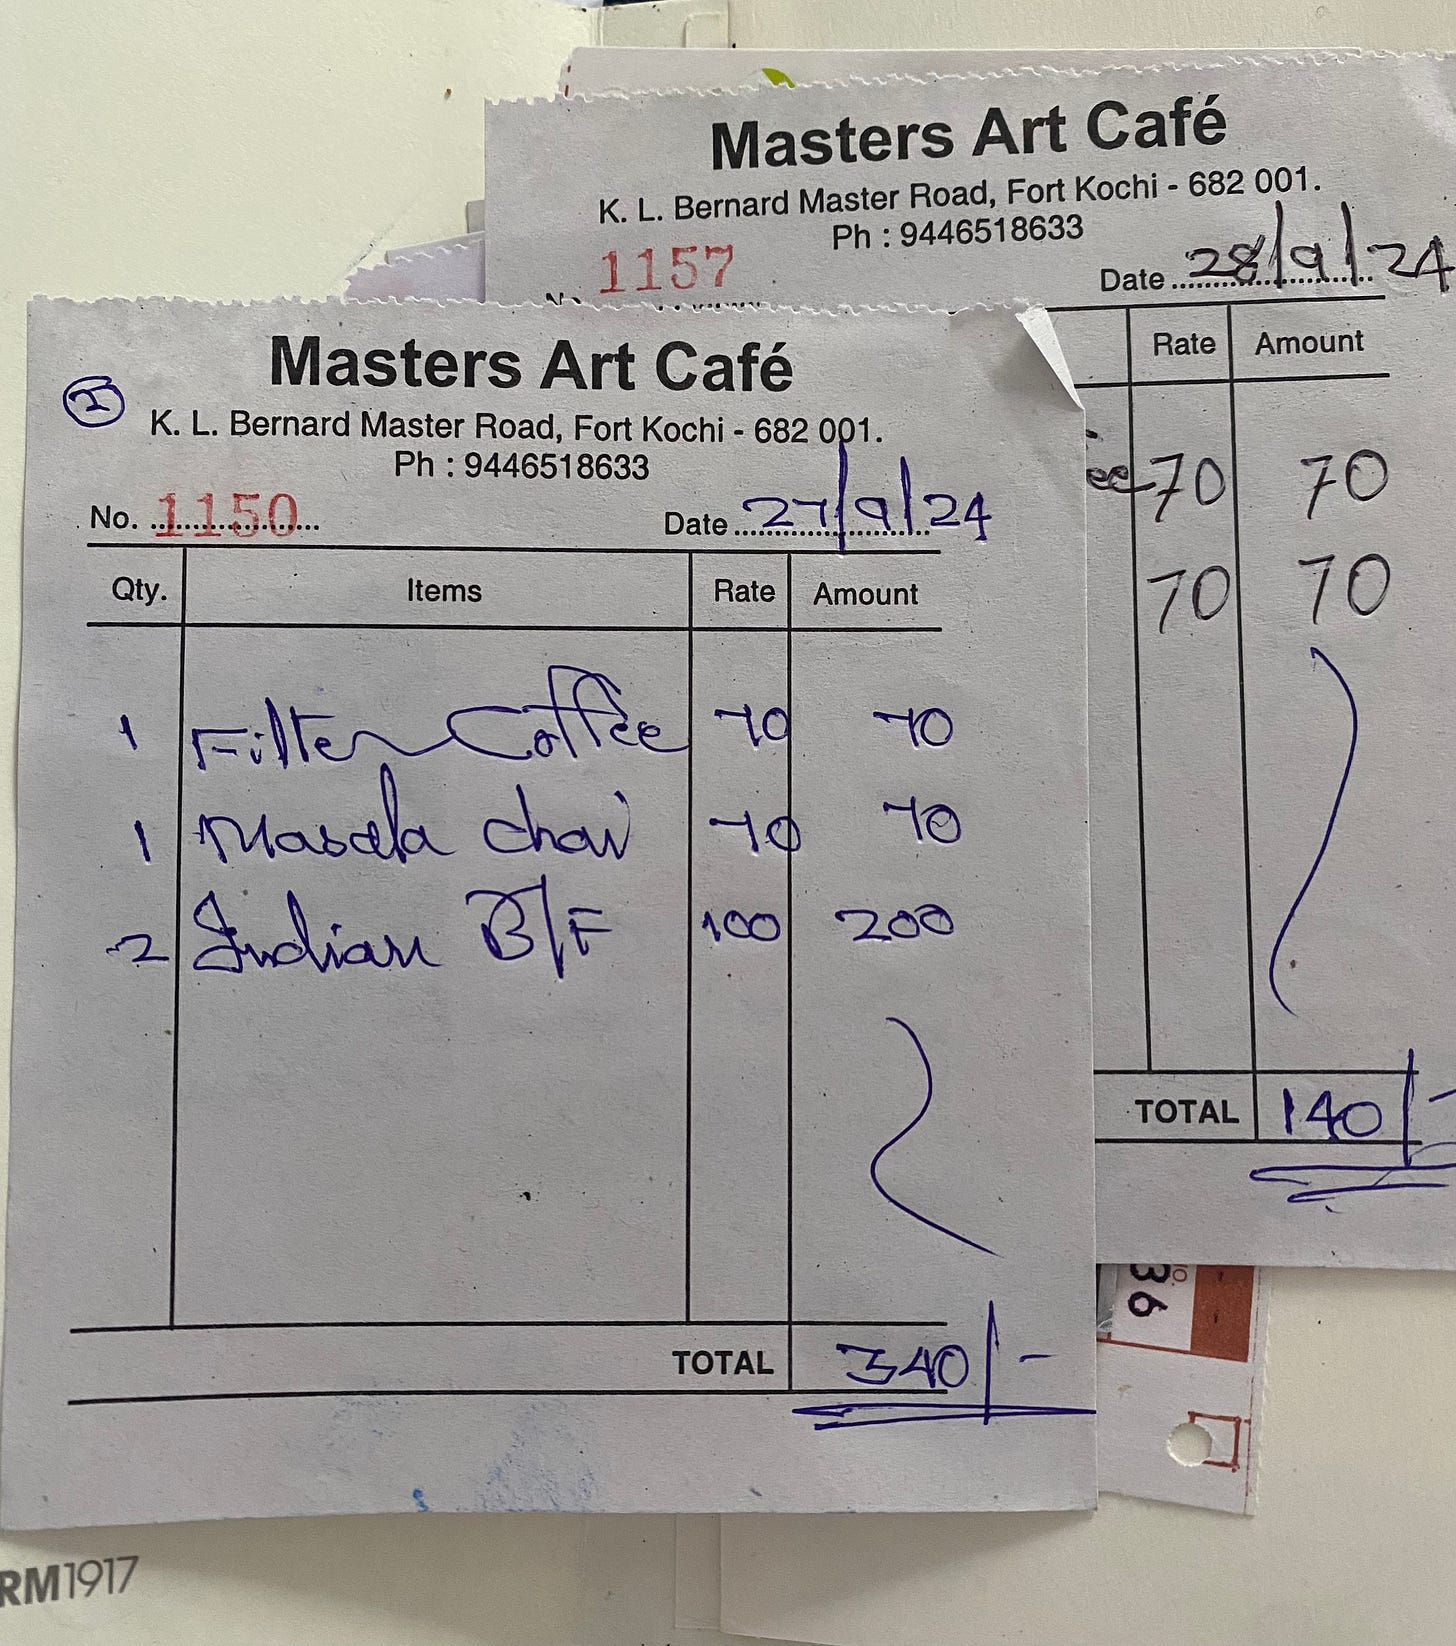 Masters Art Café
K. L. Bernard Master Road, Fort Kochi - 682 001.
Ph : 9446518633
1157
Date 28/9/24
Rate Amount
70 70
70 70
TOTAL 140/-
Masters Art Café
I
K. L. Bernard Master Road, Fort Kochi - 682 001.
Ph : 9446518633
No. 1150 Date 27/9/24
Qty. Items Rate Amount
1 Filter Coffee 70 70
1 Masala chai 70 70
2 Indian B/F 100 200
TOTAL 340/-
36
RM1917